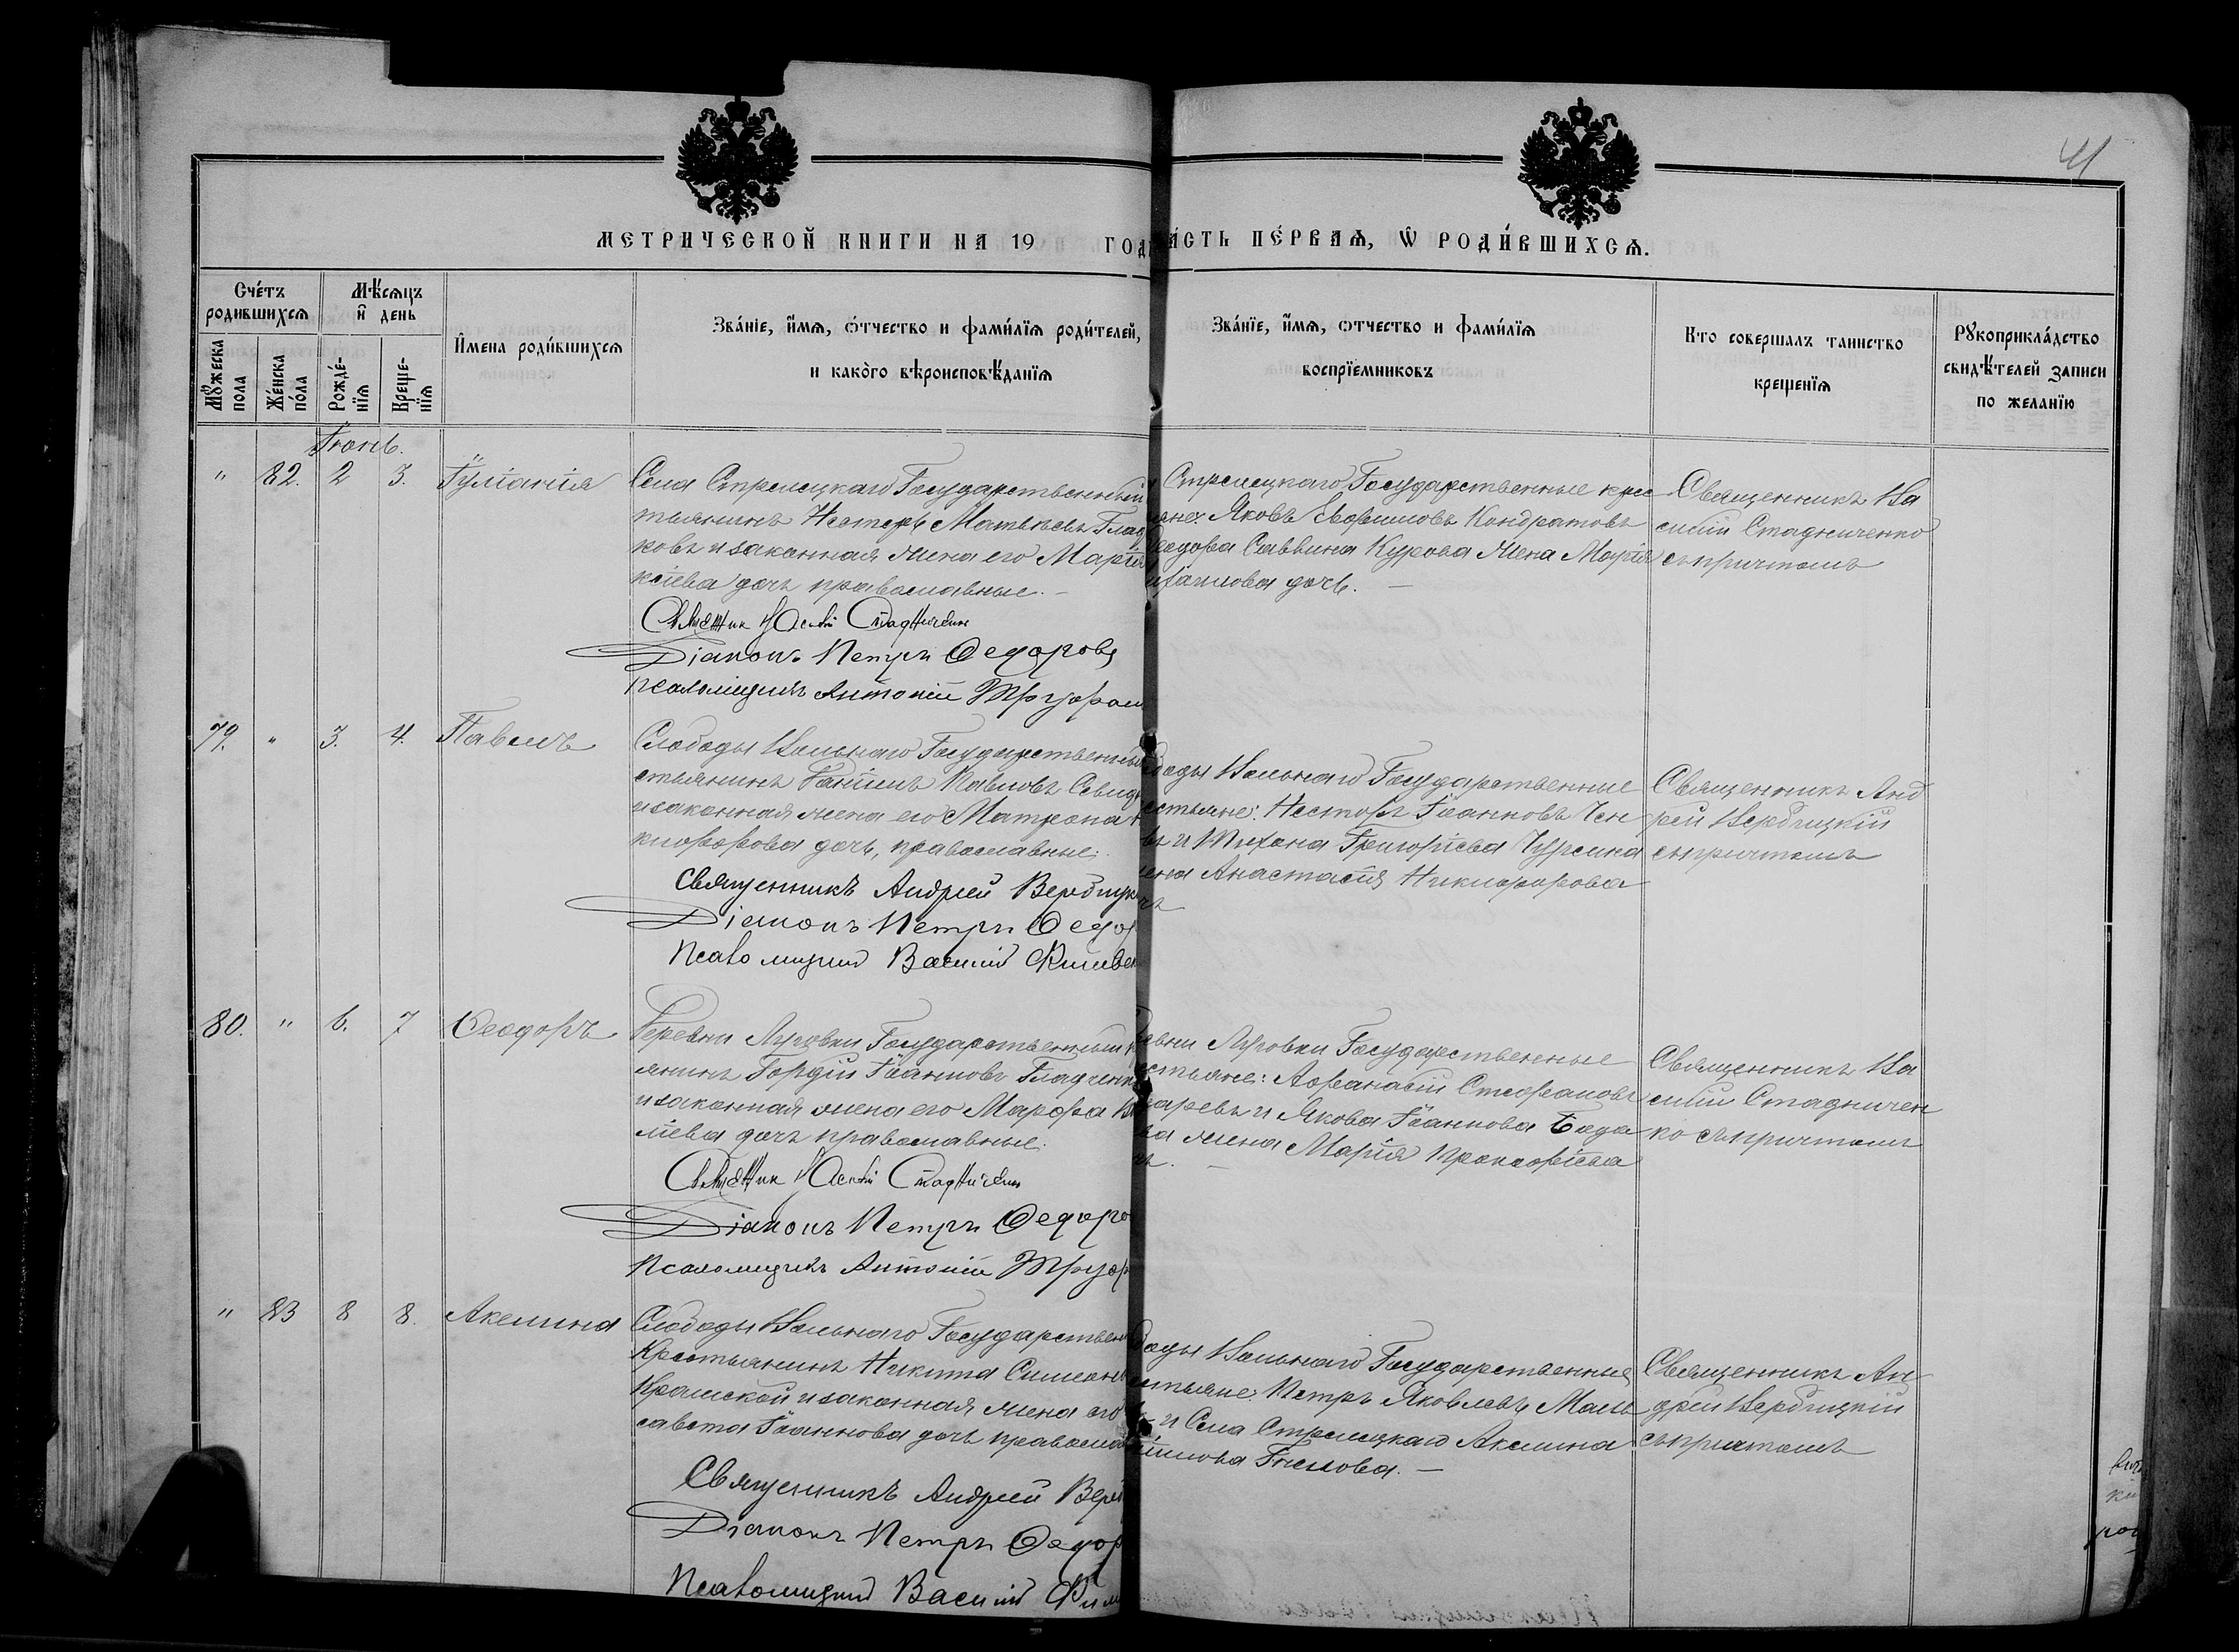 41
МЕТРИЧЕСКОЙ КНИГИ НА 19 ГОД
ЧАСТЬ ПЕ́РВАѦ, Ѿ РОДИ́ВШИХСѦ.
Сче́тъ родившихсѧ
Мѣ́сѧцъ и҆ день
Мꙋ́жеска пола
Же́нска по́ла
Рожде́-нїѧ
Креще-нїѧ
И҆мена роди́вшихсѧ
Зва́нїе, и҆́мѧ, ѻ҆́тчество и фами́лїѧ роди́телей,
и како̀го вѣроисповѣ́данїѧ
Зва́нїе, и҆́мѧ, ѻтчество и фами́лїѧ
воспрїемниковъ
Кто совершалъ таинство
крещенїѧ
Рꙋкоприкла́дство
свидѣ́телей записи
по желанїю
Іюнь.
" 82. 2 3. Іуліанія
Села Стрелецкаго Государственный
тьянинъ Нестеръ Матвѣевъ Глад
ковъ и законная жена его Марѳа
кіева дочь православные.
Священник Василій Стадниченко
Діаконъ Петръ Ѳедоровъ
Псаломщикъ Антоній
Стрелецкаго Государственные крес
яне: Яковъ Евфимовъ Кондратовъ
Ѳеодора Саввина Курова жена Марія
дочь. —
Священникъ Ва
силій Стадниченко
съ причтомъ
79. " 3. 4. Павелъ
Слободы Вольнаго Государственный
стьянинъ Даніилъ Павловъ
и законная жена его Матрона
кифорова дочь, православные.
Священникъ Андрей Вербицк
Діаконъ Петръ Ѳедор
Псаломщикъ Василій
боды Вольнаго Государственные
естьяне: Несторъ Іоанновъ Чен
въ и Тихона Григорьева Чурсина
жена Анастасія Никифорова
чь
Священникъ Анд
рей Вербицкій
съ причтомъ
80. " 6. 7 Ѳеодоръ
Деревни Луговки Государственный
янинъ Гордій Іоанновъ Гладченк
и законная жена его Марфа
ліева дочь православные.
Священник Василій Стадниченко
Діаконъ Петръ Ѳедоро
Псаломщикъ Антоній
евни Луговки Государственные
естьяне: Аѳанасій Стефановъ
заревъ и Якова Іоаннова Бода
ва жена Марія Прокофіева
чь. —
Священникъ Ва
силій Стадничен
ко съ причтомъ
" 83 8 8. Акелина
Слободы Вольнаго Государствен
Крестьянинъ Никита Симеон
Крамской и законная жена его
савета Іоаннова дочь правосла
Священникъ Андрей Верб
Діаконъ Петръ Ѳедор
Псаломщикъ Василій
боды Вольнаго Государственные
стьяне: Петръ Яковлевъ Маль
и Села Стрелецкаго Акелина
Священникъ Ан
дрей Вербицкій
съ причтомъ